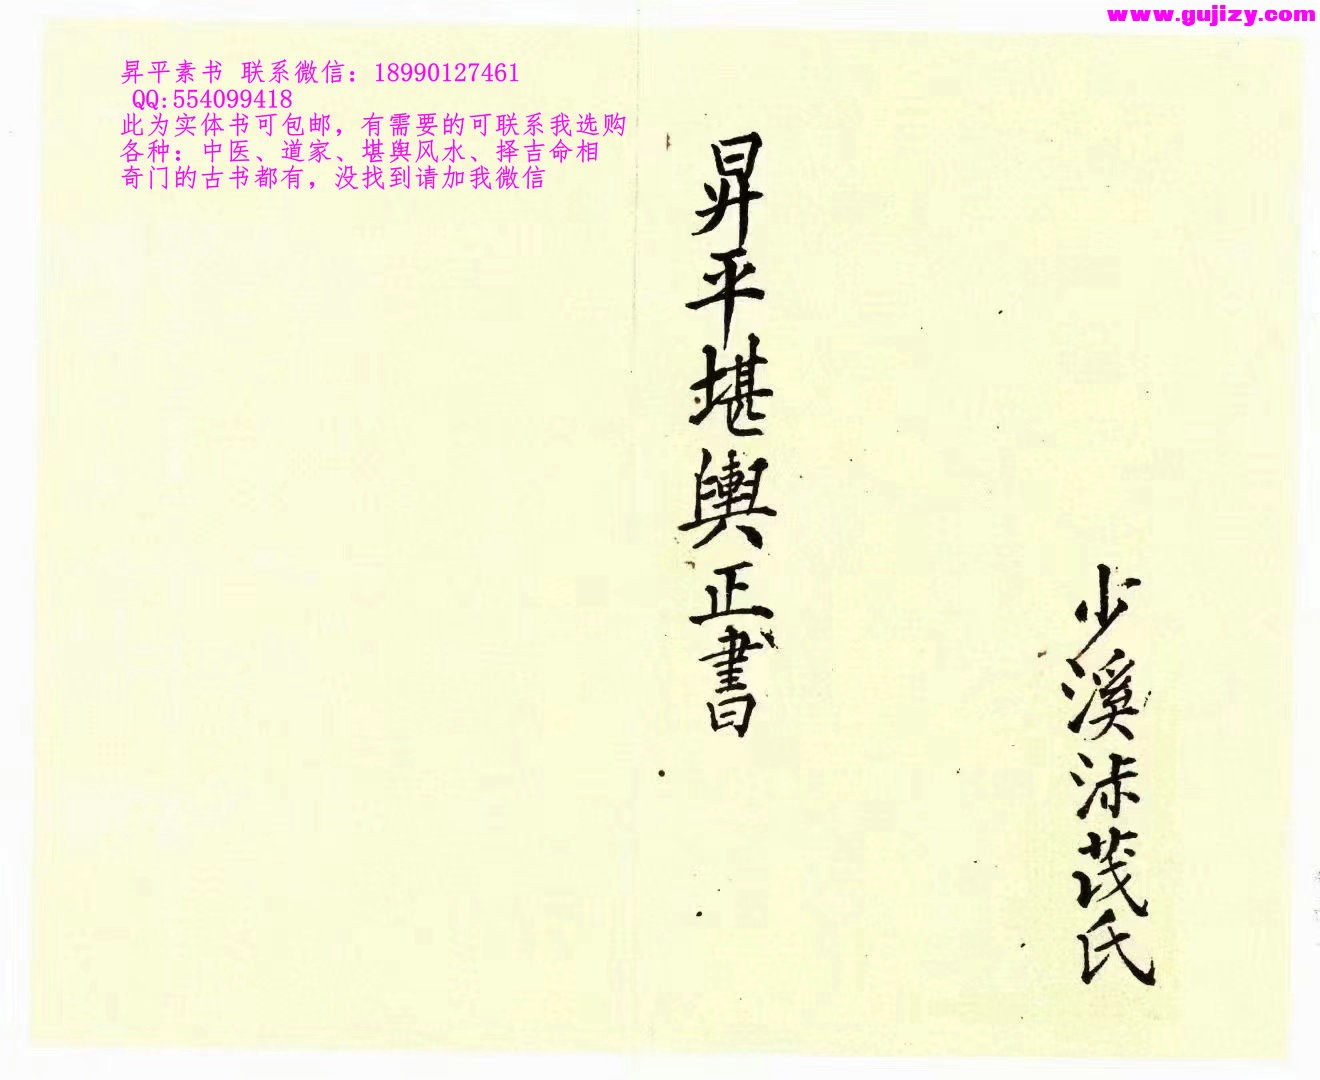 www.gujizy.com
昇平素书 联系微信：18990127461
QQ:554099418
此为实体书可包邮，有需要的可联系我选购
各种：中医、道家、堪舆风水、择吉命相
奇门的古书都有，没找到请加我微信
昇平堪輿正書
少溪沭茂氏